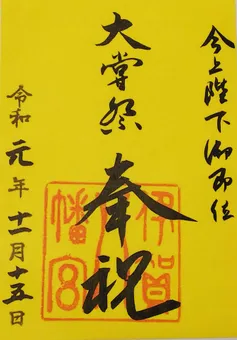 今上陛下御即位
大嘗祭
奉祝
令和元年十一月十五日
伊賀
八
幡宮